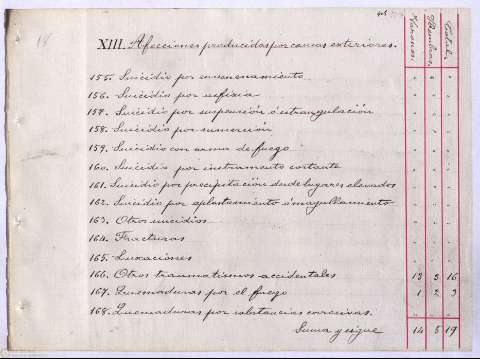 18
XIII. Afecciones producidas por causas exteriores.
Varones. Hembras. Total.
155. Suicidio por envenenamiento " " "
156. Suicidios por asfixia " " "
157. Suicidio por suspensión ó estrangulación " " "
158. Suicidio por sumersión " " "
159. Suicidio con arma de fuego " " "
160. Suicidio por instrumento cortante " " "
161. Suicidio por precipitación desde lugares elevados " " "
162. Suicidio por aplastamiento ó magullamiento " " "
163. Otros suicidios " " "
164. Fracturas " " "
165. Luxaciones " " "
166. Otros traumatismos accidentales 13 3 16
167. Quemaduras por el fuego 1 2 3
168. Quemaduras por substancias corrosivas. " " "
Suma y sigue 14 5 19